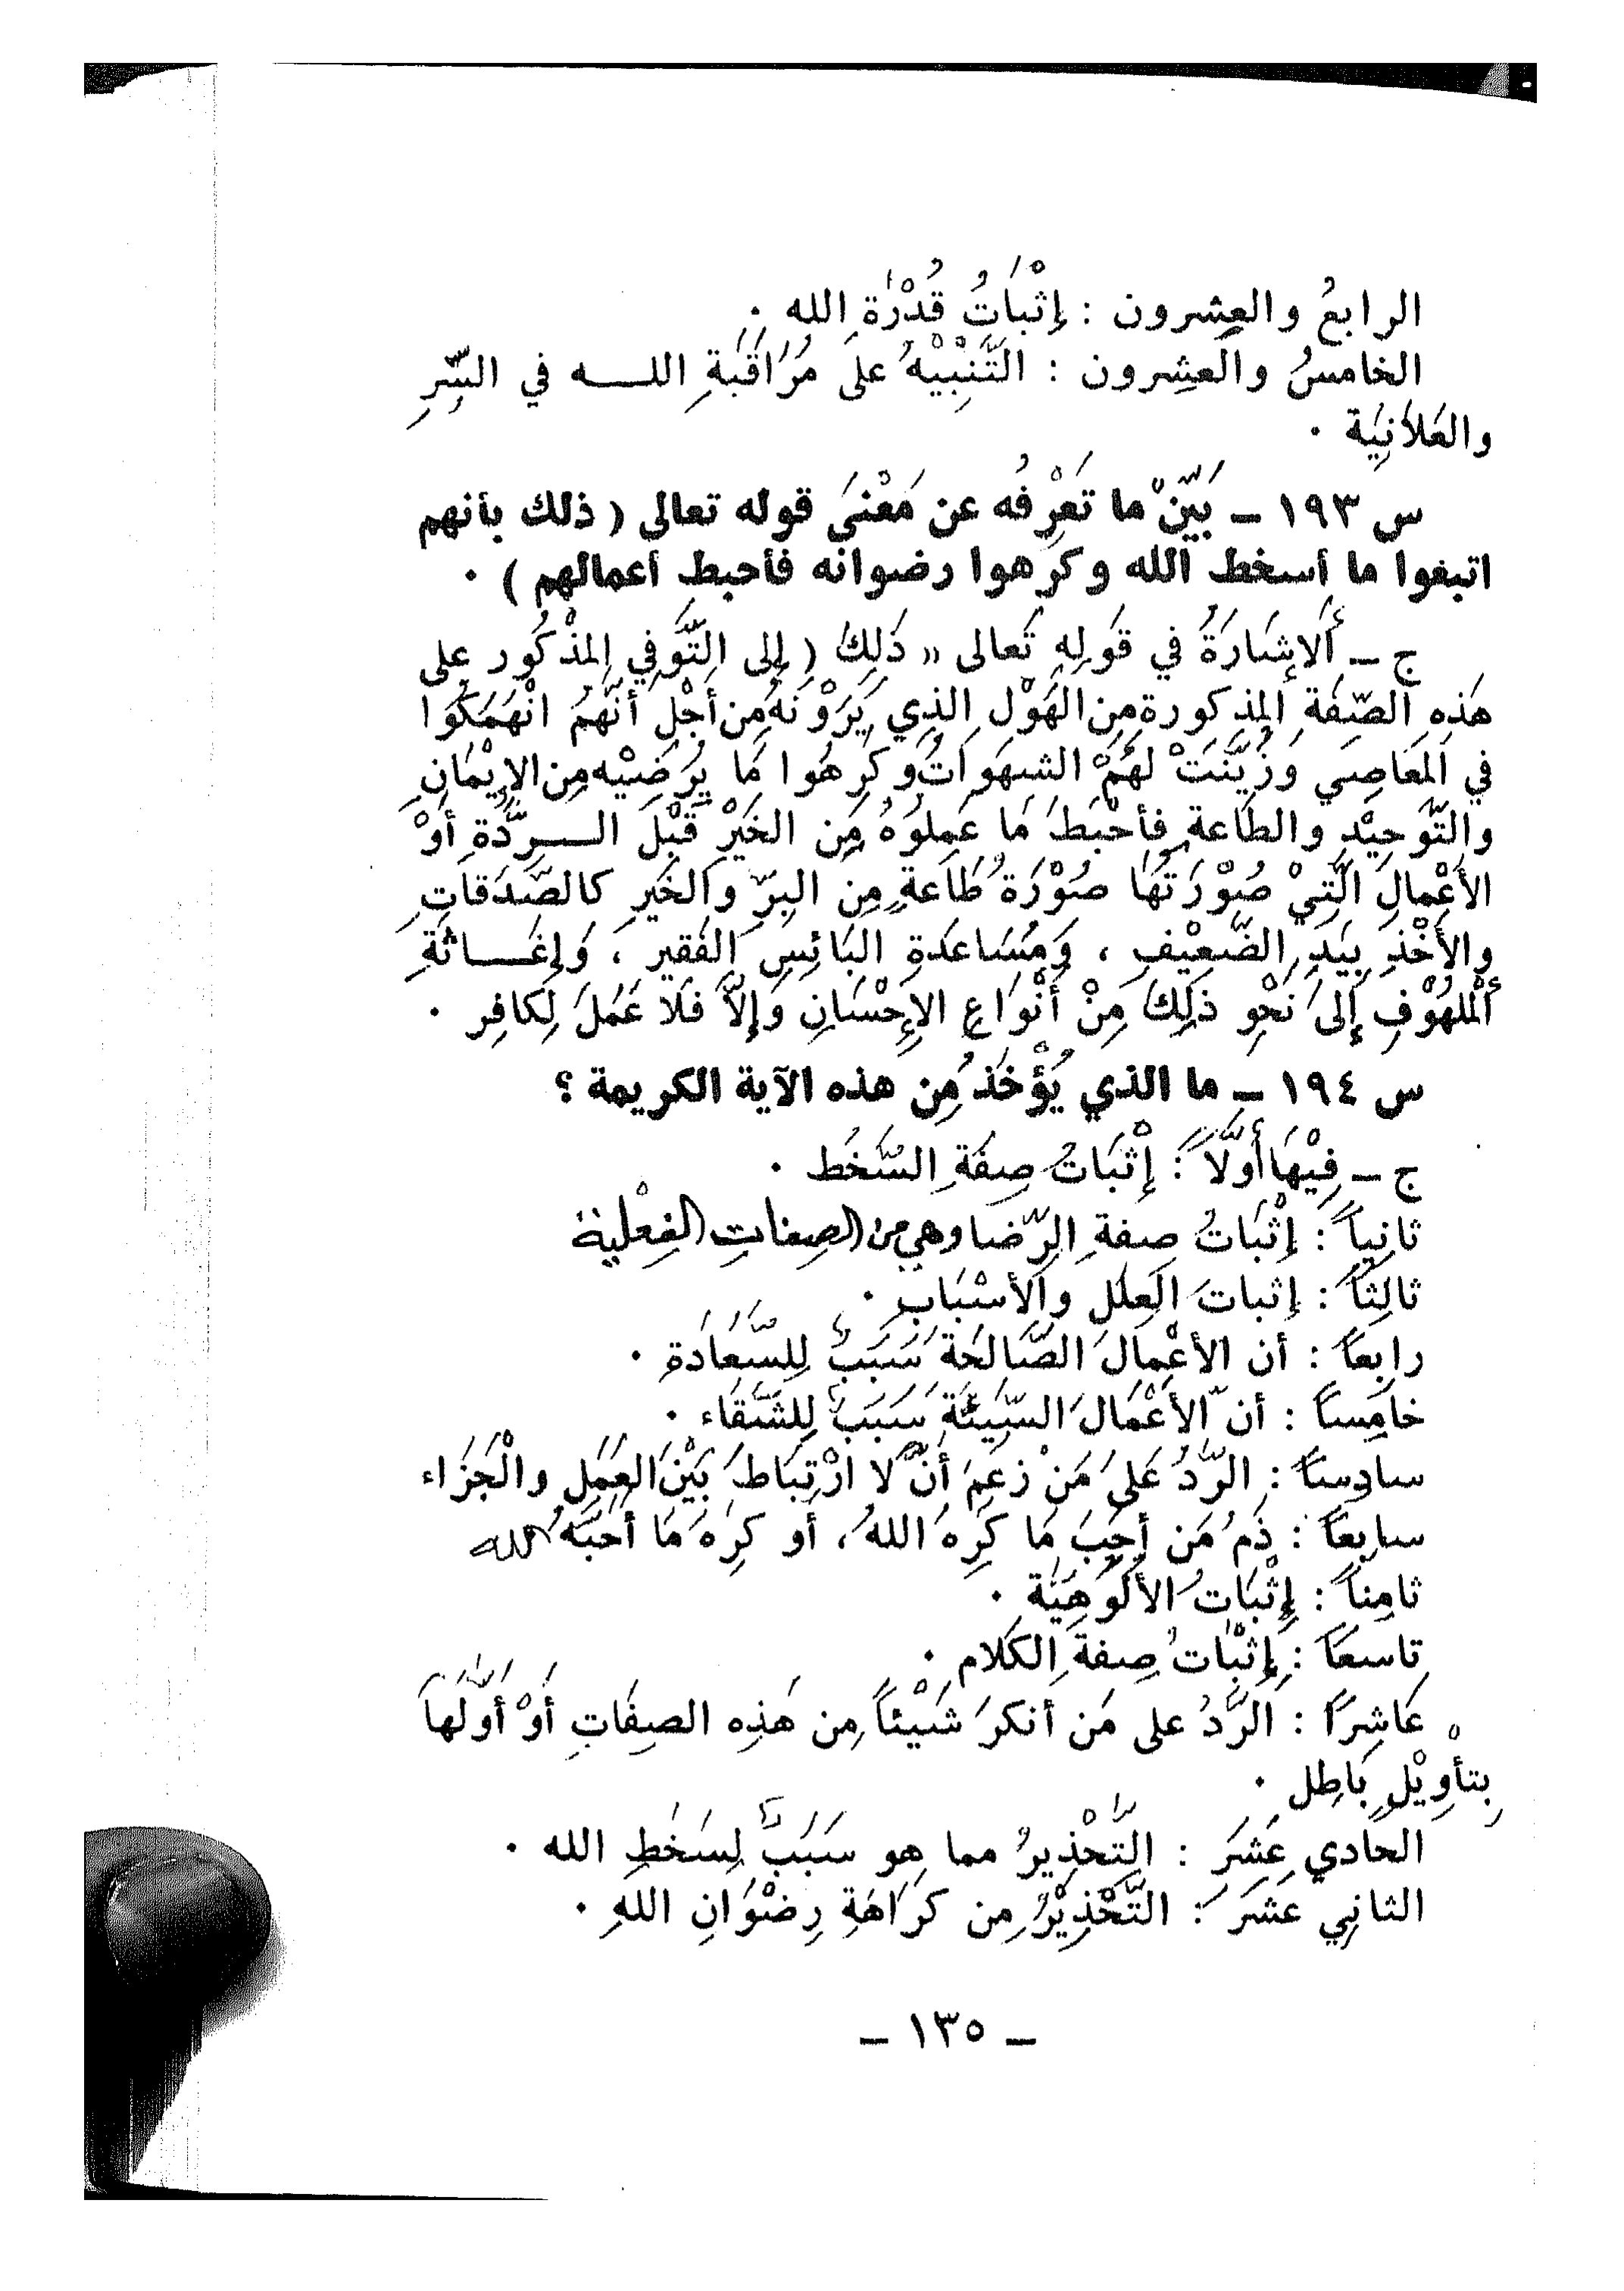 الرابعُ والعِشرون : إثْبَاتُ قُدْرَةِ الله .
الخامسُ والعِشرون : التَّنْبِيْهُ على مُرَاقَبَةِ اللـــه في السِّرِ
والعَلاَنِيَة .
س ١٩٣ ــ بَيِّنْ ما تَعْرِفُه عن مَعْنَى قوله تعالى ( ذلك بأنهم
اتبعوا ما أسخط الله وكَرهوا رضوانه فأحبط أعمالهم ) .
ج ــ أَلإشَارَةُ في قَولِهِ تَعالى « ذَلِكَ ( إلى التَّوَفِي المذْكُور على
هَذِهِ الصِّفَةِ المذكورة مِن الهَوْلِ الذِي يَرَوْنَهُ مِن أَجْلِ أَنَّهمُ انْهَمَكُوا
في المَعَاصِي وَزُيِّنَتْ لَهُمْ الشهَوَاتُ وكَرِهُوا مَا يُرْضِيْهِ مِن الإِيْمَانِ
والتَّوحِيْدِ والطَاعةِ فأحْبَطَ مَا عَمِلوُهُ مِن الخَيْرِ قَبْلَ الـــرِّدَّةِ أَوْ
الأَعْمالِ الَّتِيْ صُوْرَتُهَا صُوْرَةُ طَاعةٍ مِن البِرّ والخَيرِ كالصَّدَقاتِ
والأَخْذِ بِيَدِ الضَّعِيْفِ ، وَمُسَاعَدةِ البَائِسِ الفَقيرِ ، وَإِغَـــاثَةِ
أَلْمَلْهُوْفِ إلىَ نَحْوِ ذلِكَ مِنْ أَنْوَاعِ الإِحْسَانِ وَإِلاَّ فَلا عَمَلَ لِكافِرِ .
س ١٩٤ ــ ما الذي يُؤْخَذُ مِن هذه الآية الكريمة ؟
ج ــ فِيْهَا أَوَّلاً : إثْبَاتُ صِفَةِ السُّخَط .
ثانِياً : إثْبَاتُ صفةِ الرِّضا وهي من الصفات الفِعْلية
ثالِثاً : إثباتَ العِلَلِ والأسْبَابِ .
رابِعاً : أن الأعْمالَ الصَّالحَة سَبَبٌ لِلسَّعَادةِ .
خامِساً : أنّ الأَعْمَالَ السَّيِئَةَ سَبَبٌ لِلشَّقَاء .
سادِساً : الرَّدُ عَلىَ مَنْ زعَمَ أَنْ لاَ ارْتِبَاطَ بَيْنَ العَمَلِ والْجَزَاء
سابِعاً : ذَمُ مَن أحَبَّ مَا كَرِهَ اللهُ ، أو كَرِهَ مَا أحَبَّهُ الله
ثامِناً : إثْبَاتُ الأُلوُهِيَّة .
تاسعَاً : إثبْاتُ صِفةِ الكَلامِ .
عَاشِرَاً : الرَّدُ على مَن أنكرَ شَيْئاً مِن هَذِه الصِفَاتِ أَوْ أَوَّلَها
بِتأوِيْلٍ بَاطِل .
الحَادي عَشَرَ : التَّحْذِيرُ مما هو سَبَبٌ لِسَخَطِ الله .
الثانِي عَشَرَ : التَّحْذِيْرُ مِن كَرَاهَةِ رِضْوَانِ اللهِ .
ــ ١٣٥ ــ